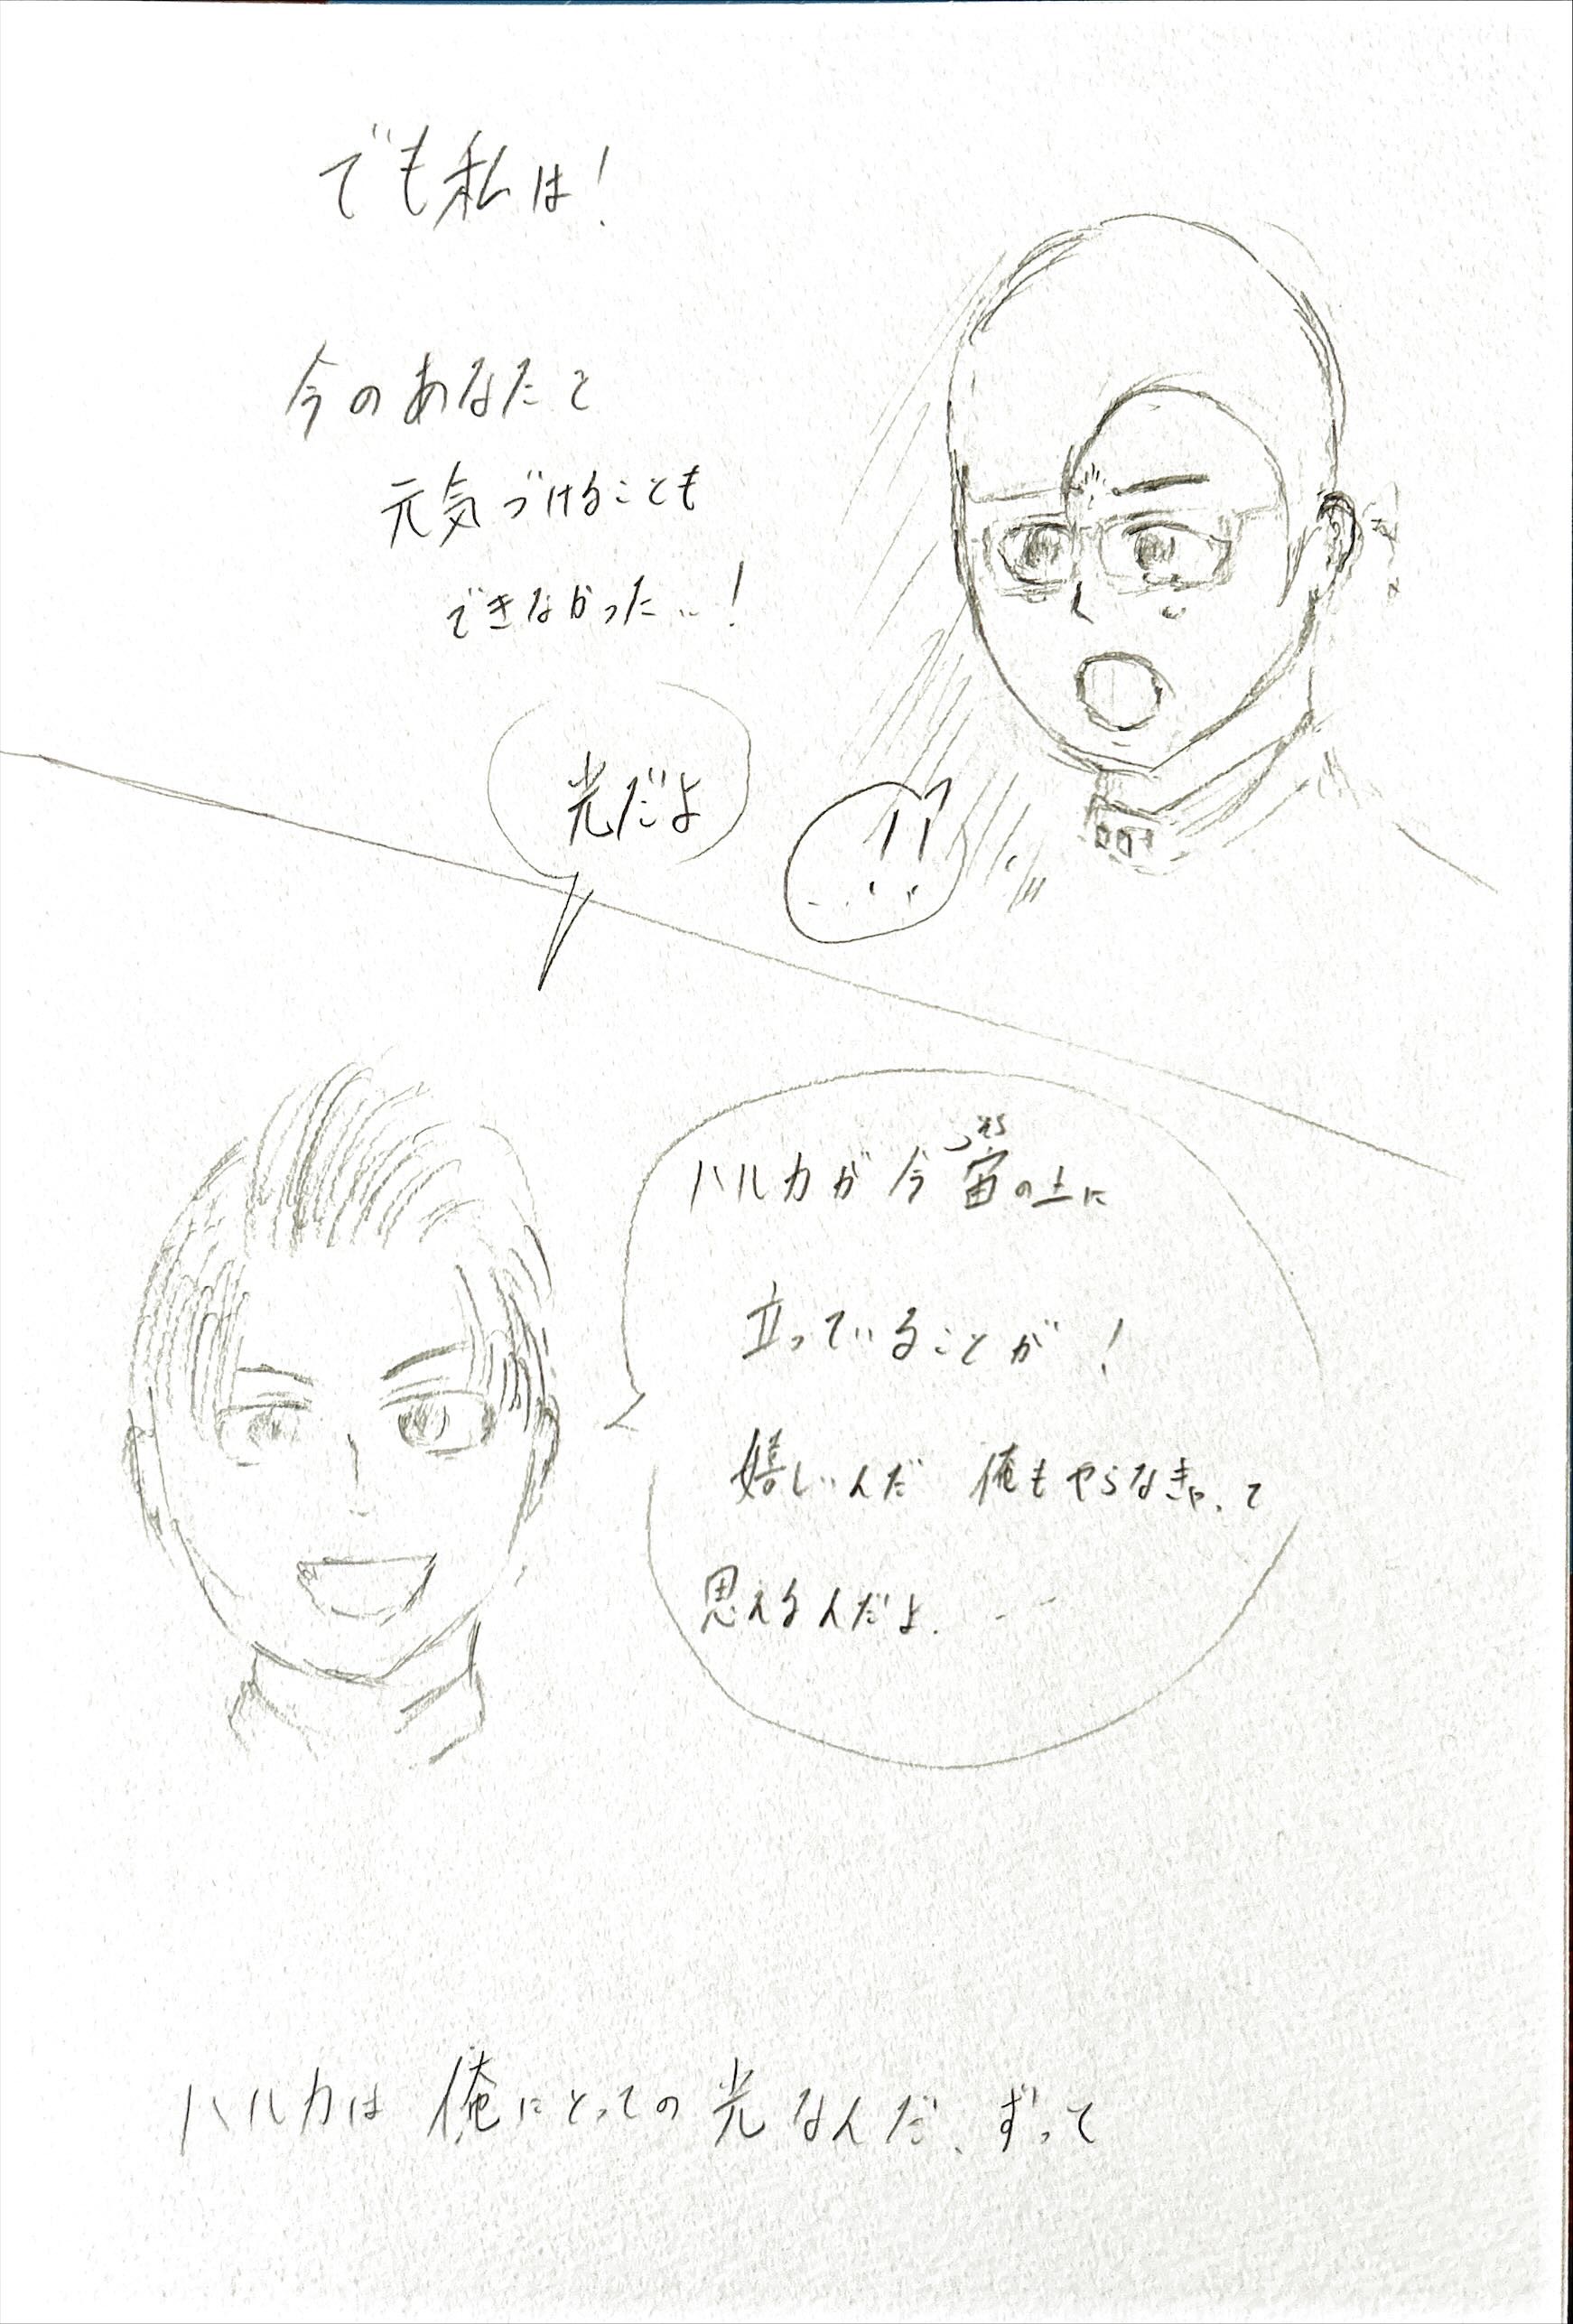 でも私は!
今のあなたと
元気づけることも
できなかった…!
光だよ
!!
そら
ハルカが今宙の上に
立っていることが!
嬉しいんだ 俺もやらなきゃって
思えるんだよ…
ハルカは俺にとっての光なんだ、ずって